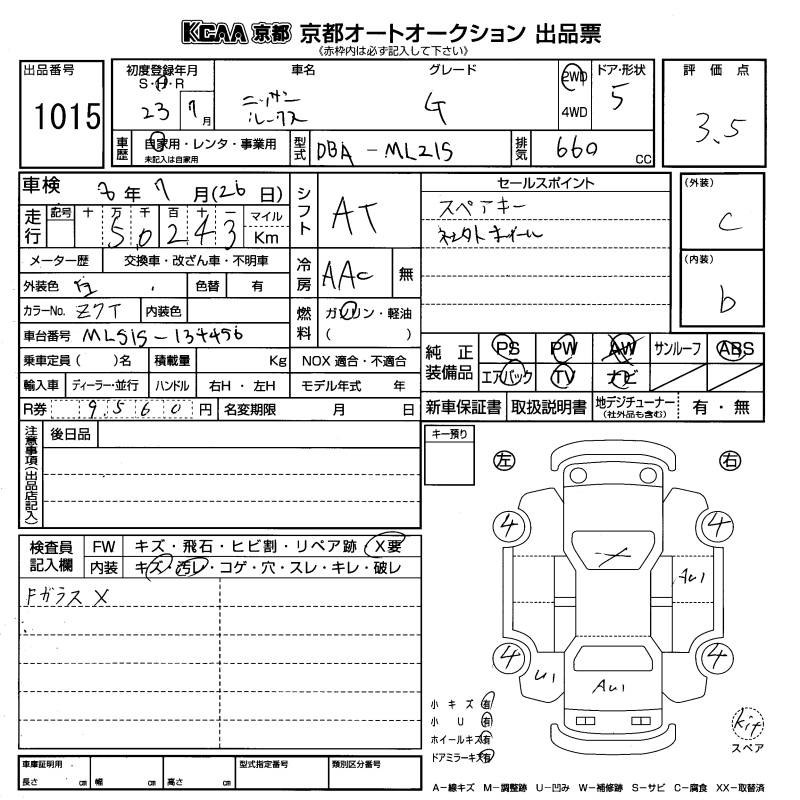 KCAA 京都 京都オートオークション 出品票
《赤枠内は必ず記入して下さい》
出品番号 初度登録年月 車名 グレード 2WD ドア・形状 評価点
S・H・R
1015 23 7月 ニッサン ルークス G 4WD 5 3.5
車歴 自家用・レンタ・事業用 型式 DBA-ML21S 排気 660 CC
未記入は自家用
車検 26年7月(26日) シフト AT セールスポイント (外装)
走行 記号 十 万 千 百 十 一 マイル スペアキー c
50243 Km 社外ホイール
メーター歴 交換車・改ざん車・不明車 冷房 AAC 無 (内装)
外装色 色替 有 b
カラーNo. Z7T 内装色 燃料 ガソリン・軽油
( )
車台番号 ML21S-134456
乗車定員( )名 積載量 Kg NOX 適合・不適合 純正装備品 PS PW AW サンルーフ ABS
輸入車 ディーラー・並行 ハンドル 右H・左H モデル年式 年 エアバック TV ナビ
R券 9560円 名変期限 月 日 新車保証書 取扱説明書 地デジチューナー 有・無
(社外品も含む)
注意事項(出品店記入) 後日品 キー預り
左 右
検査員記入欄 FW キズ・飛石・ヒビ割・リペア跡・X要 4 4
内装 キズ・汚レ・コゲ・穴・スレ・キレ・破レ X
Fガラス X AU1
4 4
U1 AU1
小キズ 有
小U 有
ホイールキズ 有 kit
ドアミラーキズ 有 スペア
車庫証明用 型式指定番号 類別区分番号
長さ cm 幅 cm 高さ cm
A−線キズ M−調整跡 U−凹み W−補修跡 S−サビ C−腐食 XX−取替済